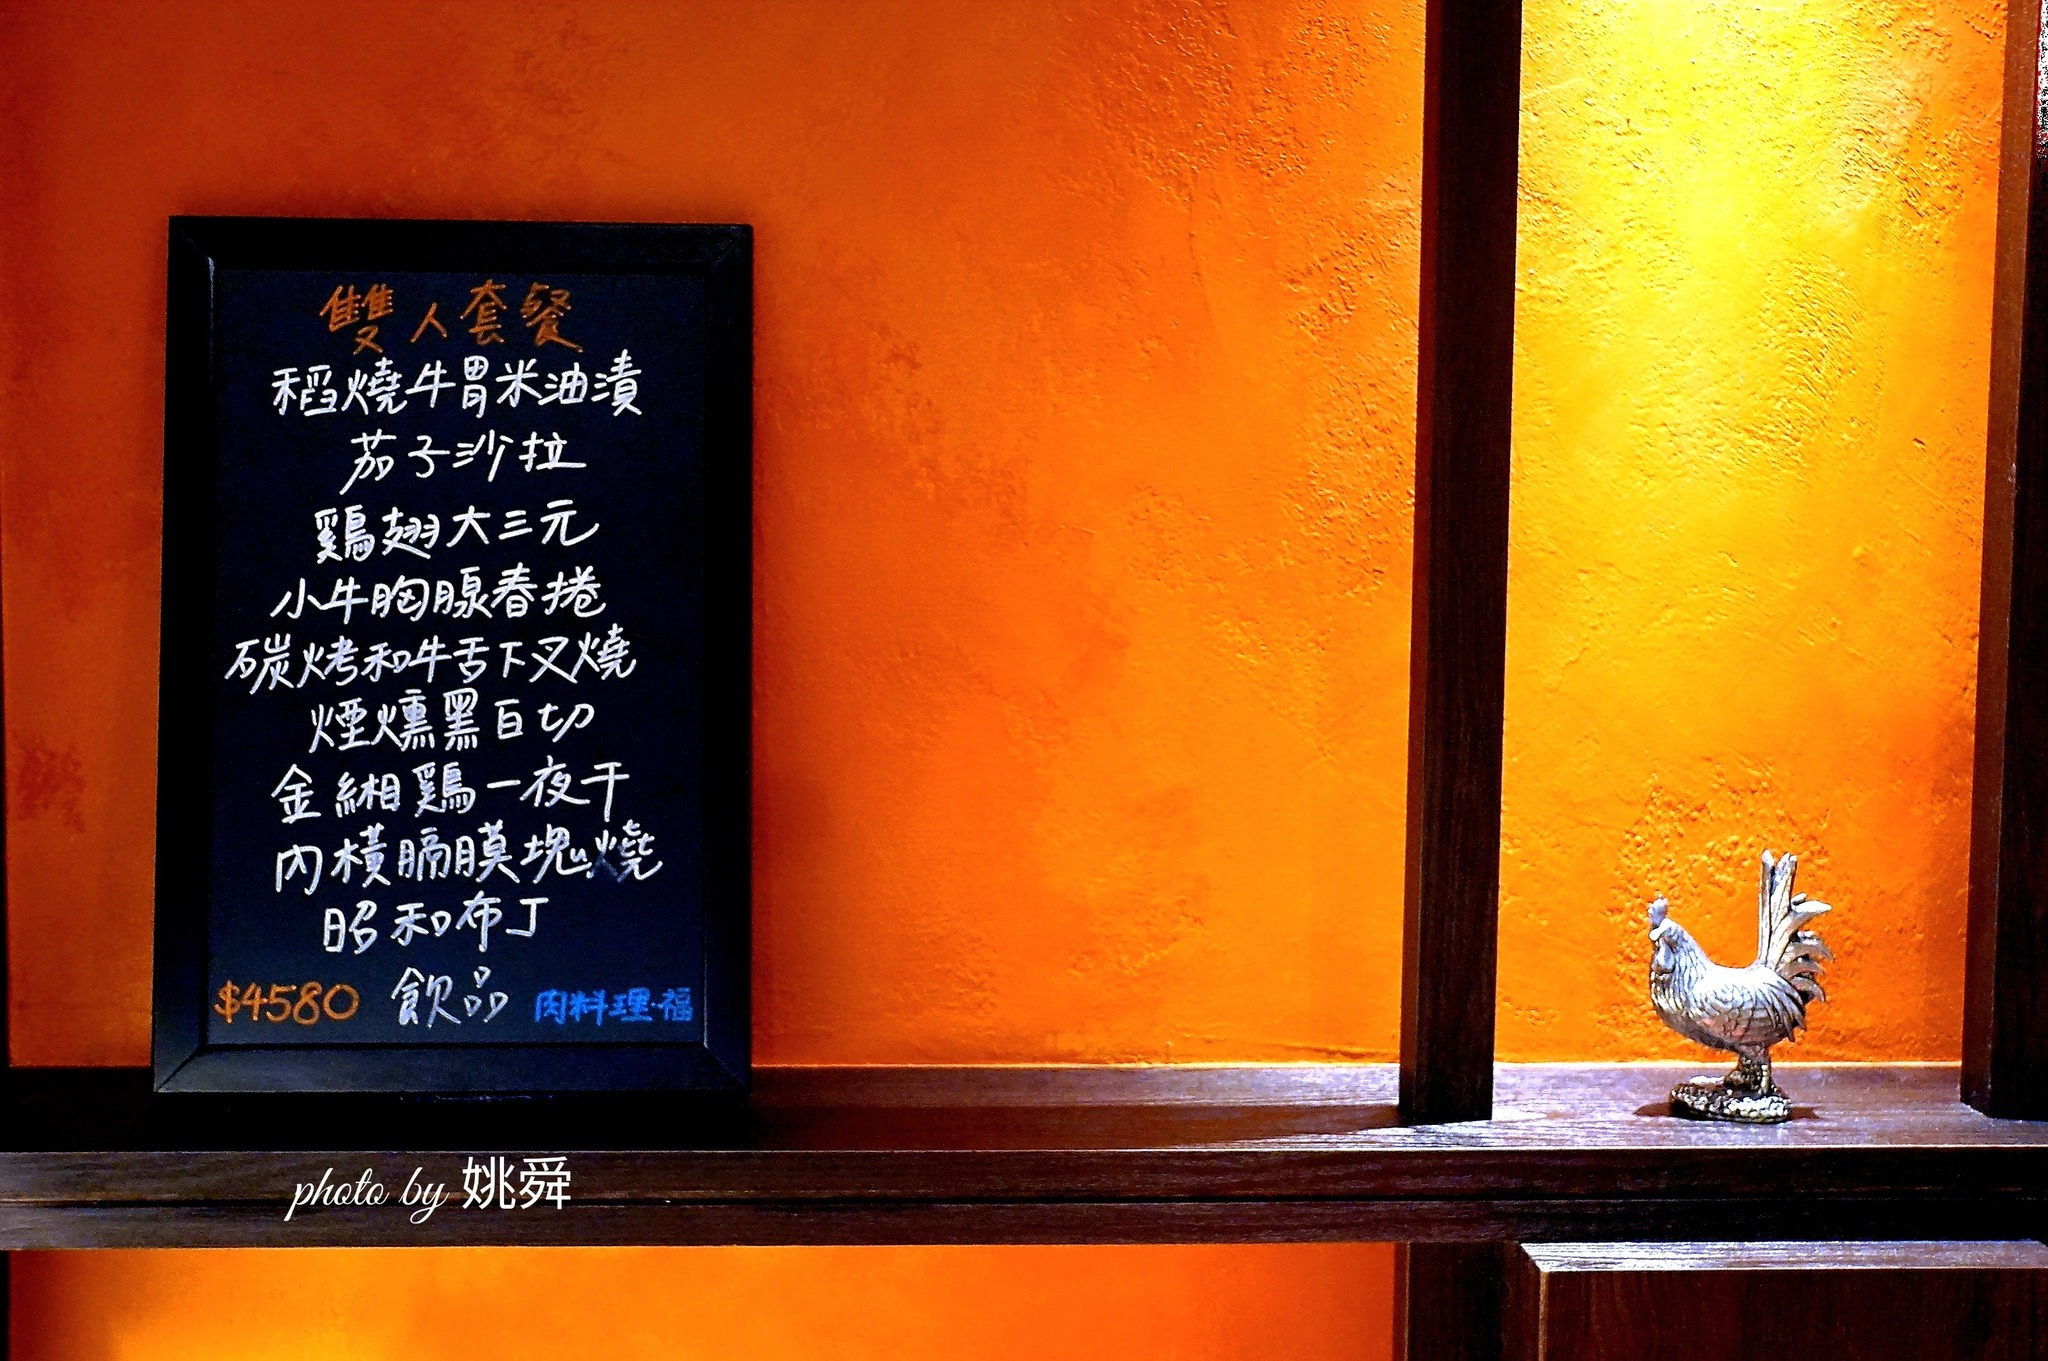 雙人套餐
稻燒牛胃米油漬
茄子沙拉
鷄翅大三元
小牛胸腺春捲
碳烤和牛舌下叉燒
煙燻黑白切
金緗鷄一夜干
內橫膈膜塊燒
昭和布丁
$4580 飲品 肉料理·福
photo by 姚舜